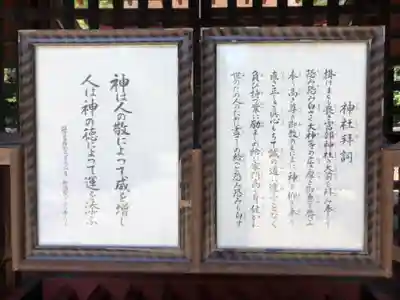 神社拝詞
掛けまくも畏き宮館神社の大前を拝み奉りて
恐み恐みも白さく大神等の広き厚き御恵を辱み
奉り高き尊き神教のまにまに神を仰ぎ奉り
直き正しき真心もちて誠の道に違ふことなく
負ひ持つ業に励ましめ給ひ家門高く身健かに
世のため人のために尽さしめ給へと恐み恐みも白す
神は人の敬によって威を増し
人は神の徳によって運を添ふ